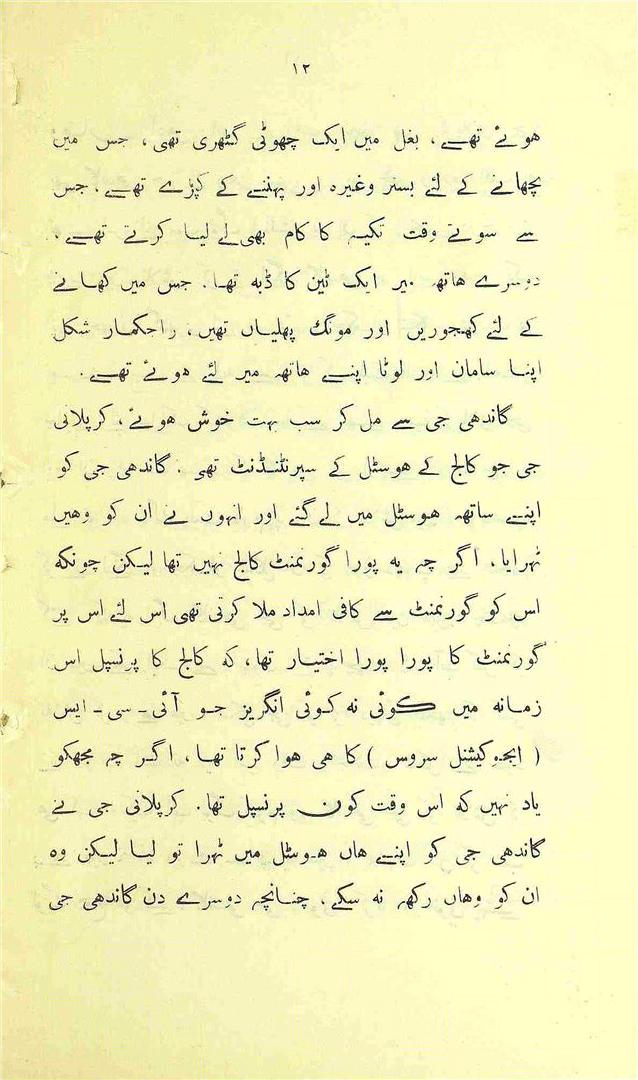 ۱۲
ہوئے تھے، بغل میں ایک چھوٹی گٹھری تھی، جس میں
بچھانے کے لئے بستر وغیرہ اور پہننے کے کپڑے تھے۔ جس
سے سوتے وقت تکیہ کا کام بھی لے لیا کرتے تھے،
دوسرے ھاتھ میں ایک ٹین کا ڈبہ تھا۔ جس میں کھانے
کے لئے کھجوریں اور مونگ پھلیاں تھیں، راجکمار شکل
اپنا سامان اور لوٹا اپنے ھاتھ میں لئے ھوئے تھے۔
گاندھی جی سے مل کر سب بہت خوش ھوئے، کرپلانی
جی جو کالج کے ھوسٹل کے سپرنٹنڈنٹ تھی۔ گاندھی جی کو
اپنے ساتھ ھوسٹل میں لے گئے اور انہوں نے ان کو وھیں
ٹہرایا، اگر چہ یہ پورا گورنمنٹ کالج نہیں تھا لیکن چونکہ
اس کو گورنمنٹ سے کافی امداد ملا کرتی تھی اس لئے اس پر
گورنمنٹ کا پورا پورا اختیار تھا، کہ کالج کا پرنسپل اس
زمانہ میں کوئی نہ کوئی انگریز جو آئی - سی - ایس
( ایجوکیشنل سروس ) کا ھی ھوا کرتا تھا، اگر چہ مجھکو
یاد نہیں کہ اس وقت کون پرنسپل تھا۔ کرپلانی جی نے
گاندھی جی کو اپنے ھاں ھوسٹل میں ٹہرا تو لیا لیکن وہ
ان کو وھاں رکھ نہ سکے، چنانچہ دوسرے دن گاندھی جی